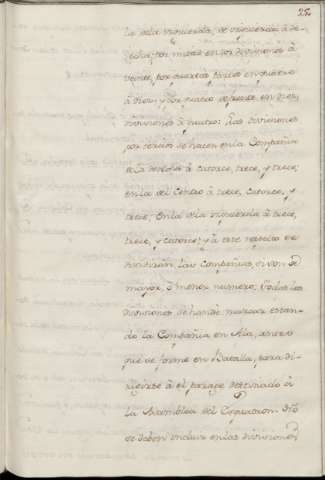 25
la ala izquierda, de izquierda à de-
recha; por mitad en dos divisiones à
veinte, por quartas partes en quatro
à diez y por frente en diez
divisiones à quatro: las divisiones
por tercios se hacen en la Compañia
de la derecha à catorce, trece, y trece;
en la del Centro à trece, catorce, y
trece; en la de la izquierda à trece,
trece, y catorce; y à este respeto se
dividirán las Compañias, si son de
mayor, ó menor numero; todas las
divisiones se han de marcar estan-
do la Compañia en Ala, antes
que se forme en Batalla, para di-
rigirse à el parage destinado à
la Asamblea del Esquadron. No
se deben incluir en las divisiones